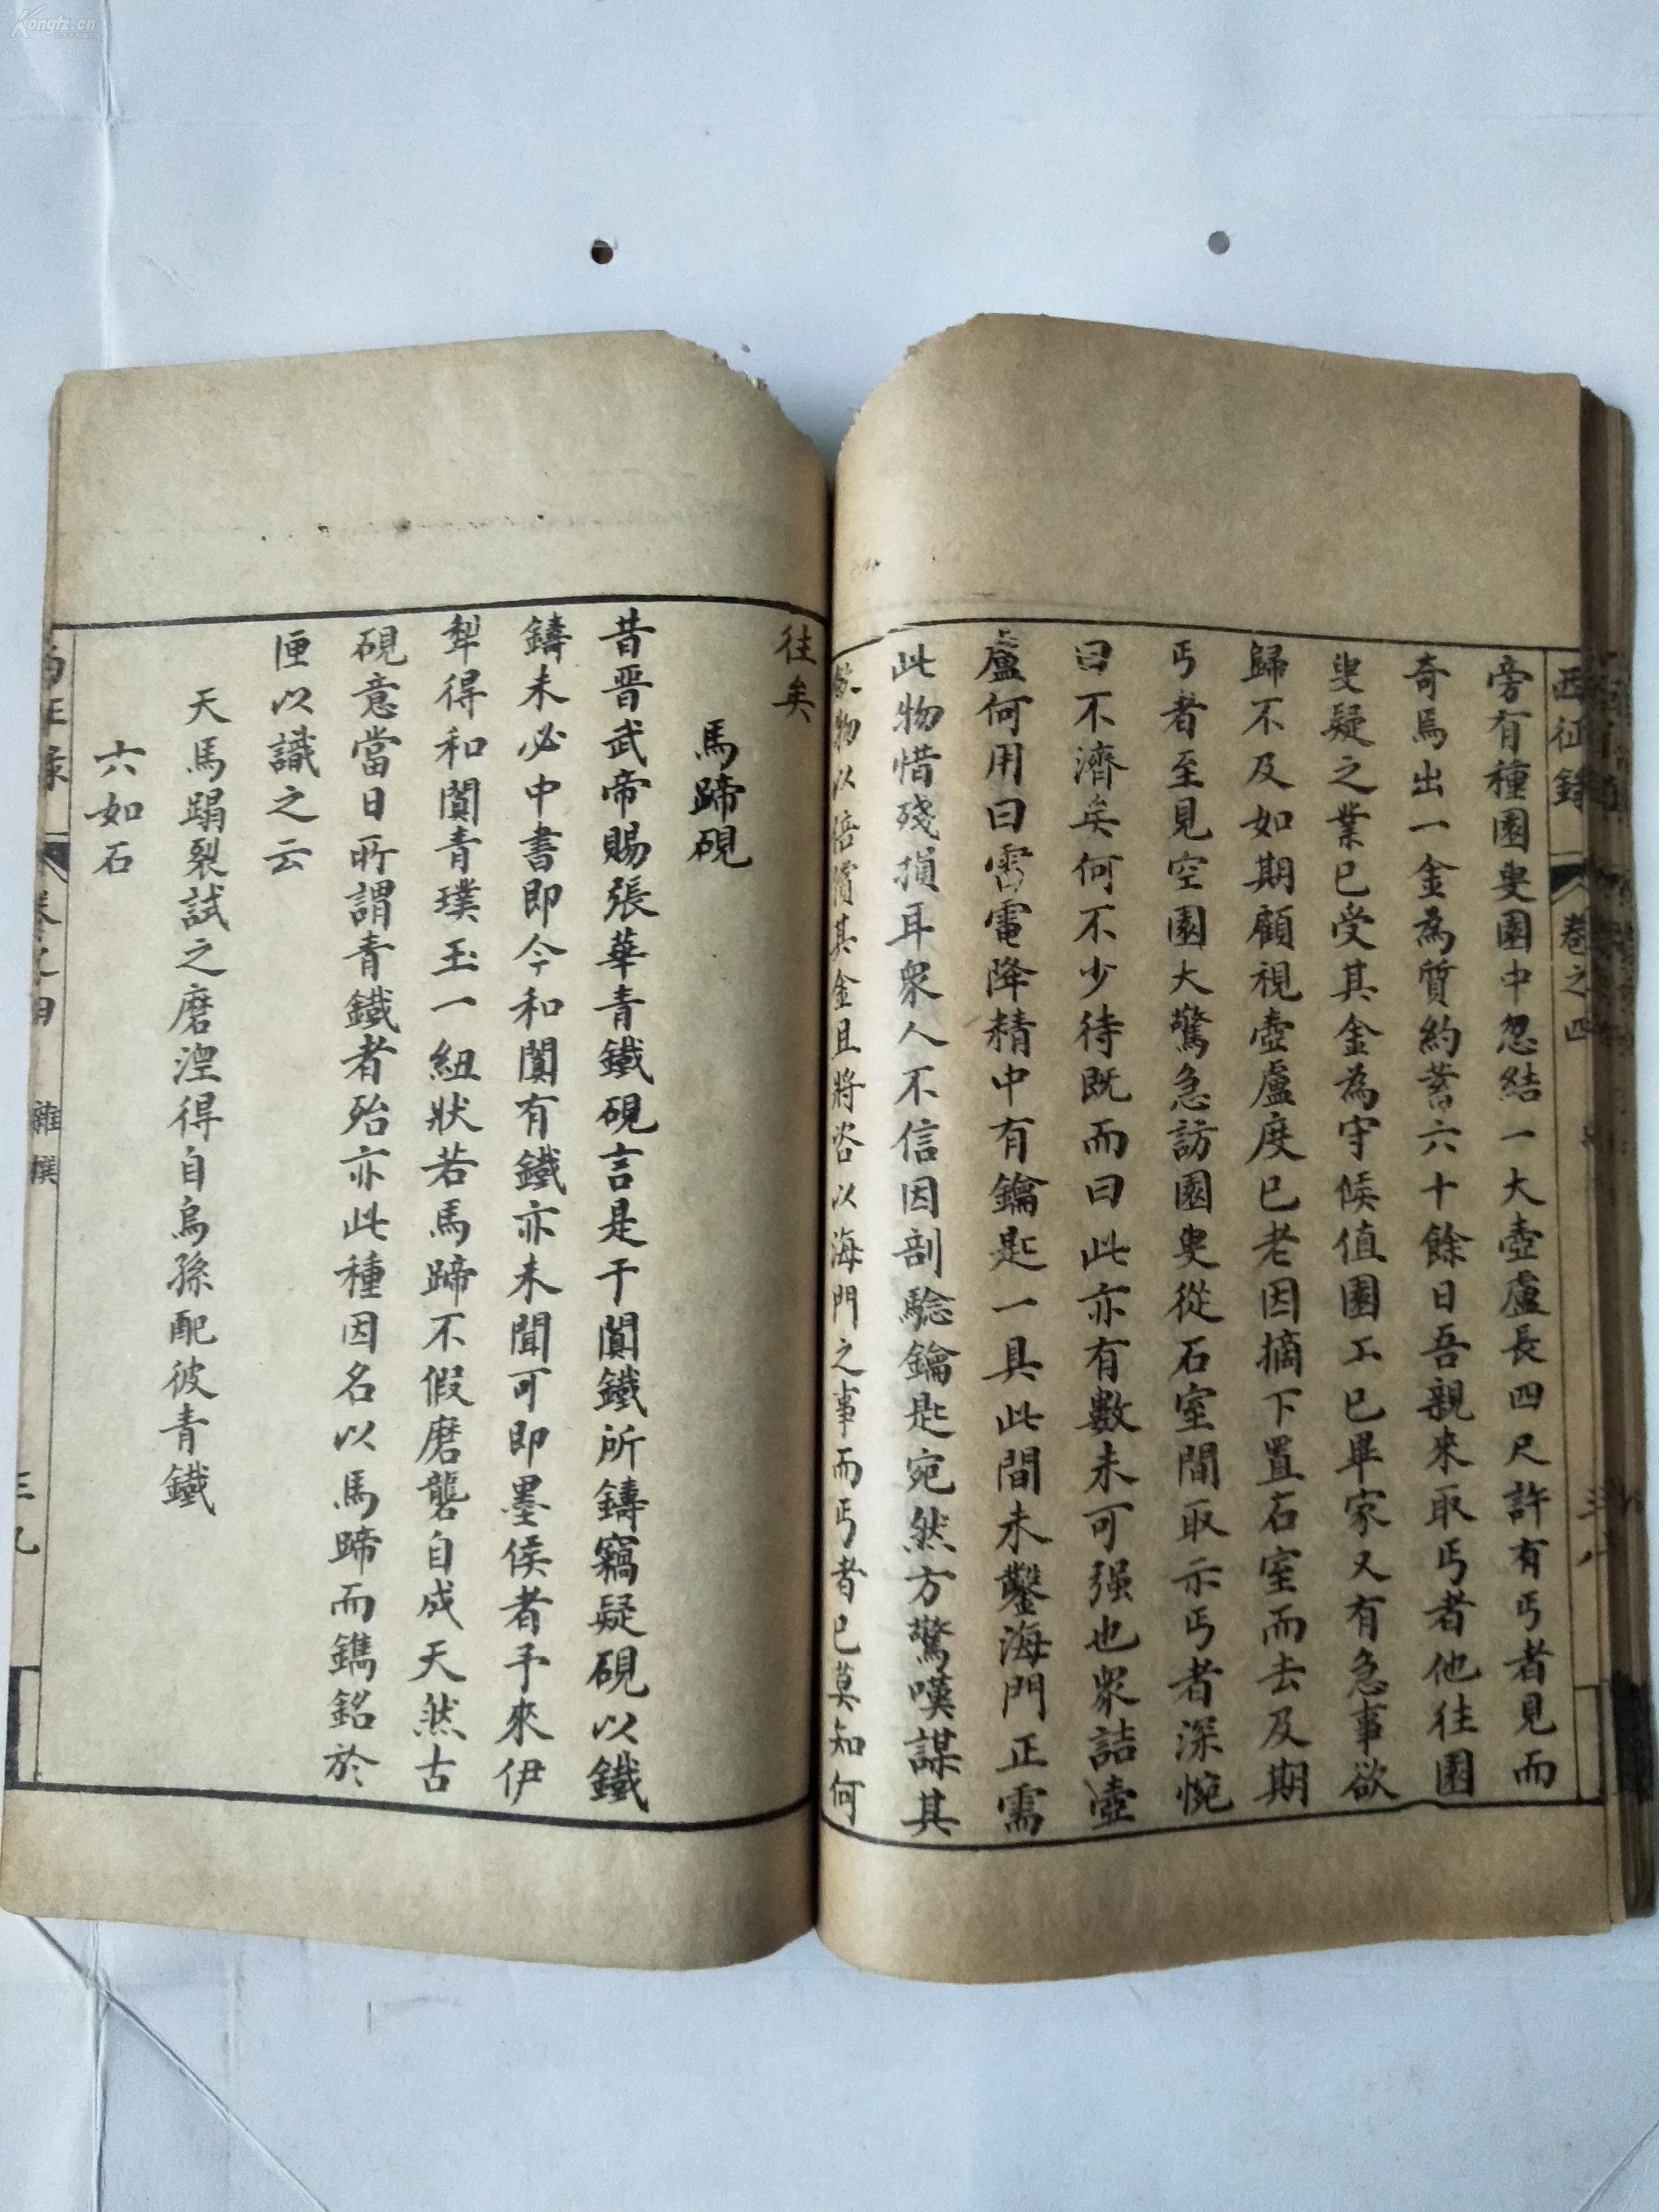 Kongfz.cn
西征錄
卷之四
三八
旁有種園叟園中忽結一大壺盧長四尺許有丐者見而
奇焉出一金為質約蓄六十餘日吾親來取丐者他往園
叟疑之業已受其金為守候值園工已畢家又有急事欲
歸不及如期顧視壺盧度已老因摘下置石室而去及期
丐者至見空園大驚急訪園叟從石室間取示丐者深惋
曰不濟矣何不少待既而曰此亦有數未可强也眾詰壺
盧何用曰雷電降精中有鑰匙一具此間未鑿海門正需
此物惜殘損耳眾人不信因剖驗鑰匙宛然方驚嘆謀其
物以陪償其金且將咨以海門之事而丐者已莫知何
往矣
馬蹄硯
昔晋武帝賜張華青鐵硯言是于闐鐵所鑄竊疑硯以鐵
鑄未必中書即今和闐有鐵亦未聞可即墨侯者予來伊
犁得和闐青璞玉一紐狀若馬蹄不假磨礱自成天然古
硯意當日所謂青鐵者殆亦此種因名以馬蹄而鐫銘於
匣以識之云
天馬蹋裂試之磨涅得自烏孫配彼青鐵
六如石
西征錄
卷之四
雜撰
三九